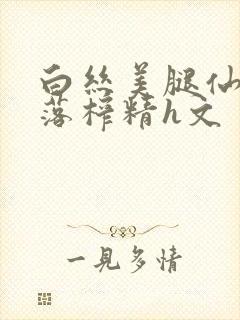 白丝美腿仙
落榨精h文
一見多情